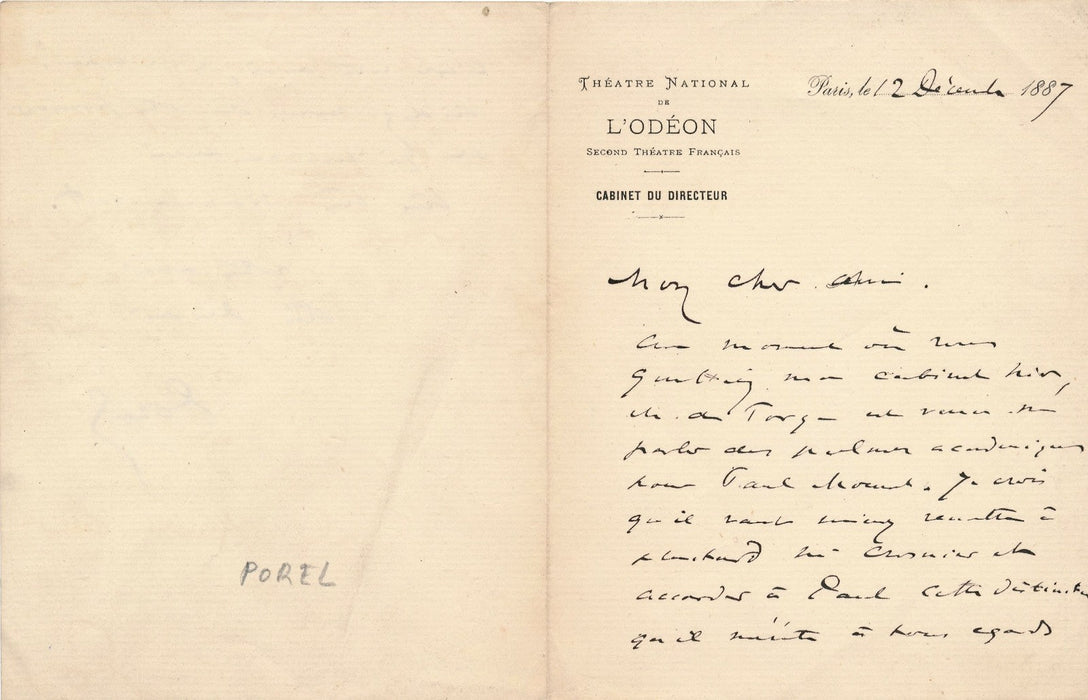 POREL
THÉATRE NATIONAL
DE
L'ODÉON
SECOND THÉATRE FRANÇAIS
CABINET DU DIRECTEUR
Paris, le 12 Décembre 1887
Mon cher ami.
Au moment où vous
quittiez mon cabinet hier,
M. de Torça est venu me
parler des palmes académiques
pour Paul Mounet. Je crois
qu'il vaut mieux remettre à
plus tard Mr Crosnier et
accorder à Paul cette distinction
qu'il mérite à tous égards